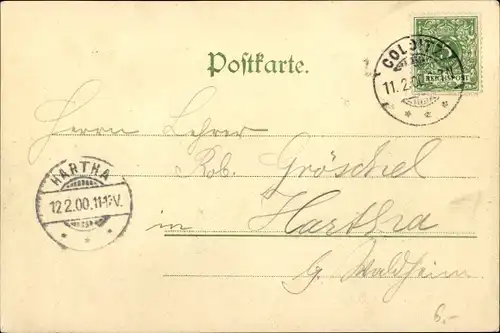 Postkarte.
COLDITZ
11.2.00
5
REICHSPOST
Herrn Lehrer
Rob. Gröschel
HARTHA
12.2.00.11-12V.
in Hartha
b. Waldheim
6.-